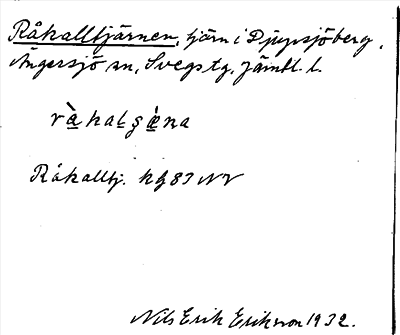 Råkalltjärnen, tjärn i Djupsjöberg,
Ängersjö sn, Svegs tg, Jämtl. l.
Råkalltj. kg 83 NV
Nils Erik Eriksson 1932.